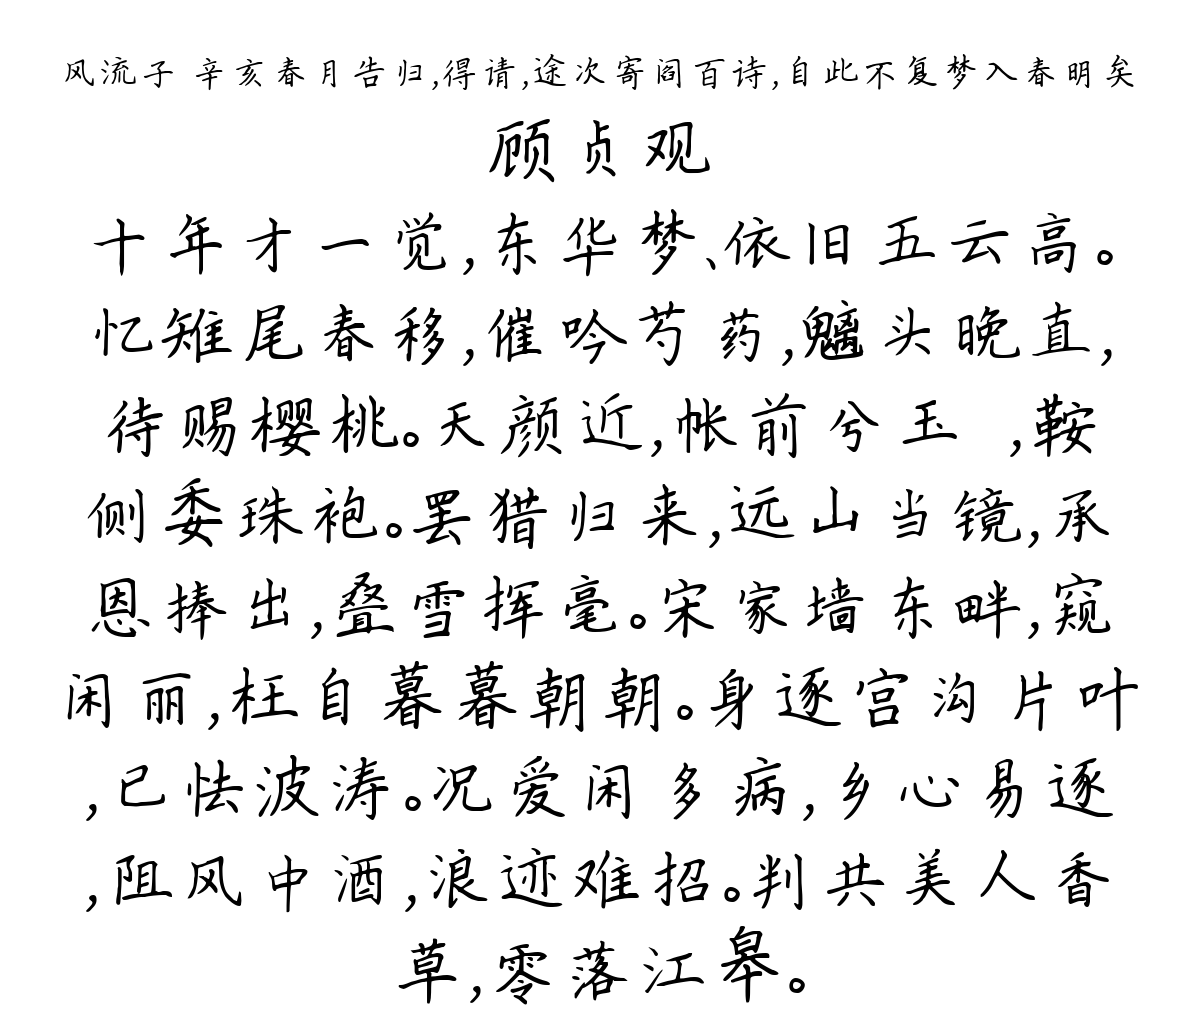 风流子 辛亥春月告归,得请,途次寄阎百诗,自此不复梦入春明矣
顾贞观
十年才一觉,东华梦、依旧五云高。
忆雉尾春移,催吟芍药,魑头晚直,
待赐樱桃。天颜近,帐前兮玉 ,鞍
侧委珠袍。罢猎归来,远山当镜,承
恩捧出,叠雪挥毫。宋家墙东畔,窥
闲丽,枉自暮暮朝朝。身逐宫沟片叶
,已怯波涛。况爱闲多病,乡心易逐
,阻风中酒,浪迹难招。判共美人香
草,零落江皋。